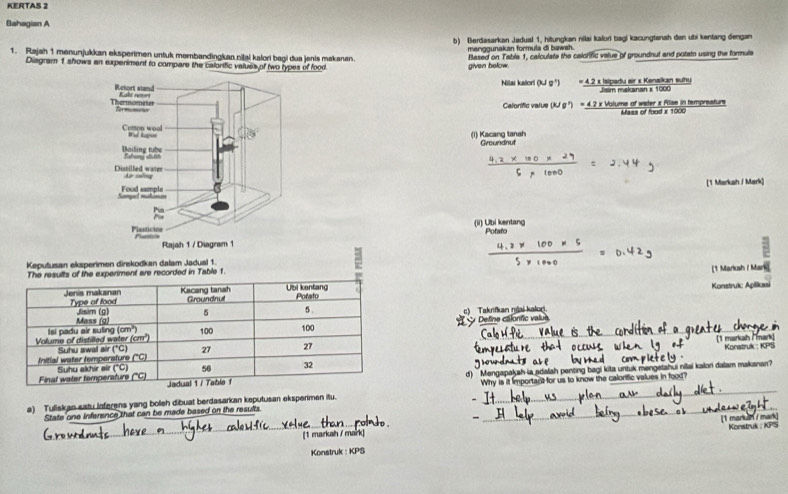 KERTAS 2
Bahagian A
1. Rajah 1 menunjukkan eksperimen untuk membandingkan nilai kalori bagi dua jenis makanan.
Diagram 1 shows an experiment to compare the calorific values of two types of food.
Retort stand
Kaki retort
Thermometer
Termometer
Cotton wool
Wul kapas
Boiling tube
Tabung didih
Distilled water
Air suling
Food sample
Sampel makanan
Pin
Pin
Plasticine
Plastisin
Rajah 1 / Diagram 1
Keputusan eksperimen direkodkan dalam Jadual 1.
The results of the experiment are recorded in Table 1.
Jenis makanan Kacang tanah Ubi kentang
Type of food Groundnut Potato
Jisim (g) 5 5
Mass (g)
Isi padu air suling (cm³) 100 100
Volume of distilled water (cm³)
Suhu awal air (°C) 27 27
Initial water temperature (°C)
Suhu akhir air (°C) 56 32
Final water temperature (°C)
Jadual 1 / Table 1
a) Tuliskan satu inferens yang boleh dibuat berdasarkan keputusan eksperimen itu.
State one inference that can be made based on the results.
Groundnuts have a higher calorific value than potato.
[1 markah / mark]
Konstruk : KPS
b) Berdasarkan Jadual 1, hitungkan nilai kalori bagi kacang tanah dan ubi kentang dengan
menggunakan formula di bawah.
Based on Table 1, calculate the calorific value of groundnut and potato using the formula
given below.
Nilai kalori (kJ g⁻¹) = 4.2 x Isipadu air x Kenaikan suhu
Jisim makanan x 1000
Calorific value (kJ g⁻¹) = 4.2 x Volume of water x Rise in tempreature
Mass of food x 1000
(i) Kacang tanah
Groundnut
4.2 x 100 x 29
5 x 1000 = 2.44 g
[1 Markah / Mark]
(ii) Ubi kentang
Potato
4.2 x 100 x 5
5 x 1000 = 0.42g
[1 Markah / Mark]
Konstruk: Aplikasi
c) Takrifkan nilai kalori.
Define calorific value.
Calorific value is the condition of a greater change in
temperature that occurs when ly of
groundnuts are burned completely.
[1 markah / mark]
Konstruk : KPS
d) Mengapakah ia adalah penting bagi kita untuk mengetahui nilai kalori dalam makanan?
Why is it important for us to know the calorific values in food?
- It help us plan our daily diet.
- It help avoid being obese or underweight.
[1 markah / mark]
Konstruk : KPS